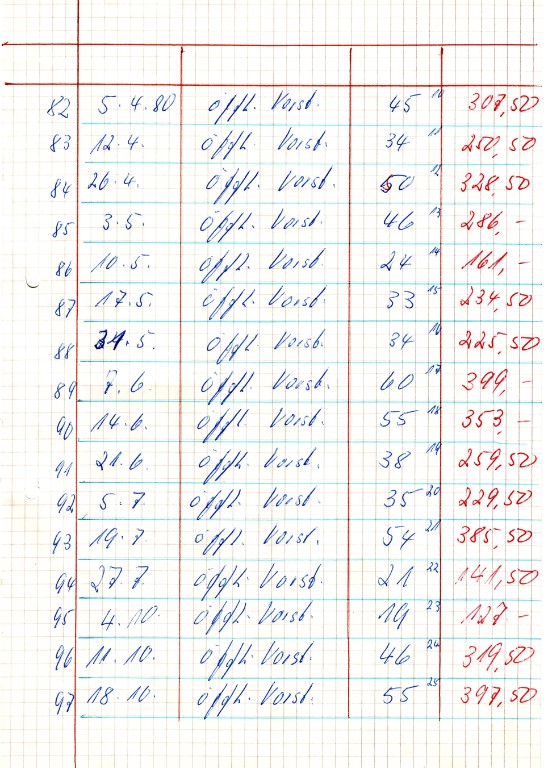 82 5.4.80 öffl. Vorst. 45 10 307,50
83 12.4. öffl. Vorst. 34 11 250,50
84 26.4. öffl. Vorst. 50 12 328,50
85 3.5. öffl. Vorst. 46 13 286,-
86 10.5. öffl. Vorst. 24 14 161,-
87 17.5. öffl. Vorst. 33 15 234,50
88 31.5. öffl. Vorst. 34 16 225,50
89 7.6. öffl. Vorst. 60 17 399,-
90 14.6. öffl. Vorst. 55 18 353,-
91 21.6. öffl. Vorst. 38 19 259,50
92 5.7. öffl. Vorst. 35 20 229,50
93 19.7. öffl. Vorst. 54 21 385,50
94 27.7. öffl. Vorst. 21 22 141,50
95 4.10. öffl. Vorst. 19 23 127,-
96 11.10. öffl. Vorst. 46 24 319,50
97 18.10. öffl. Vorst. 55 25 397,50